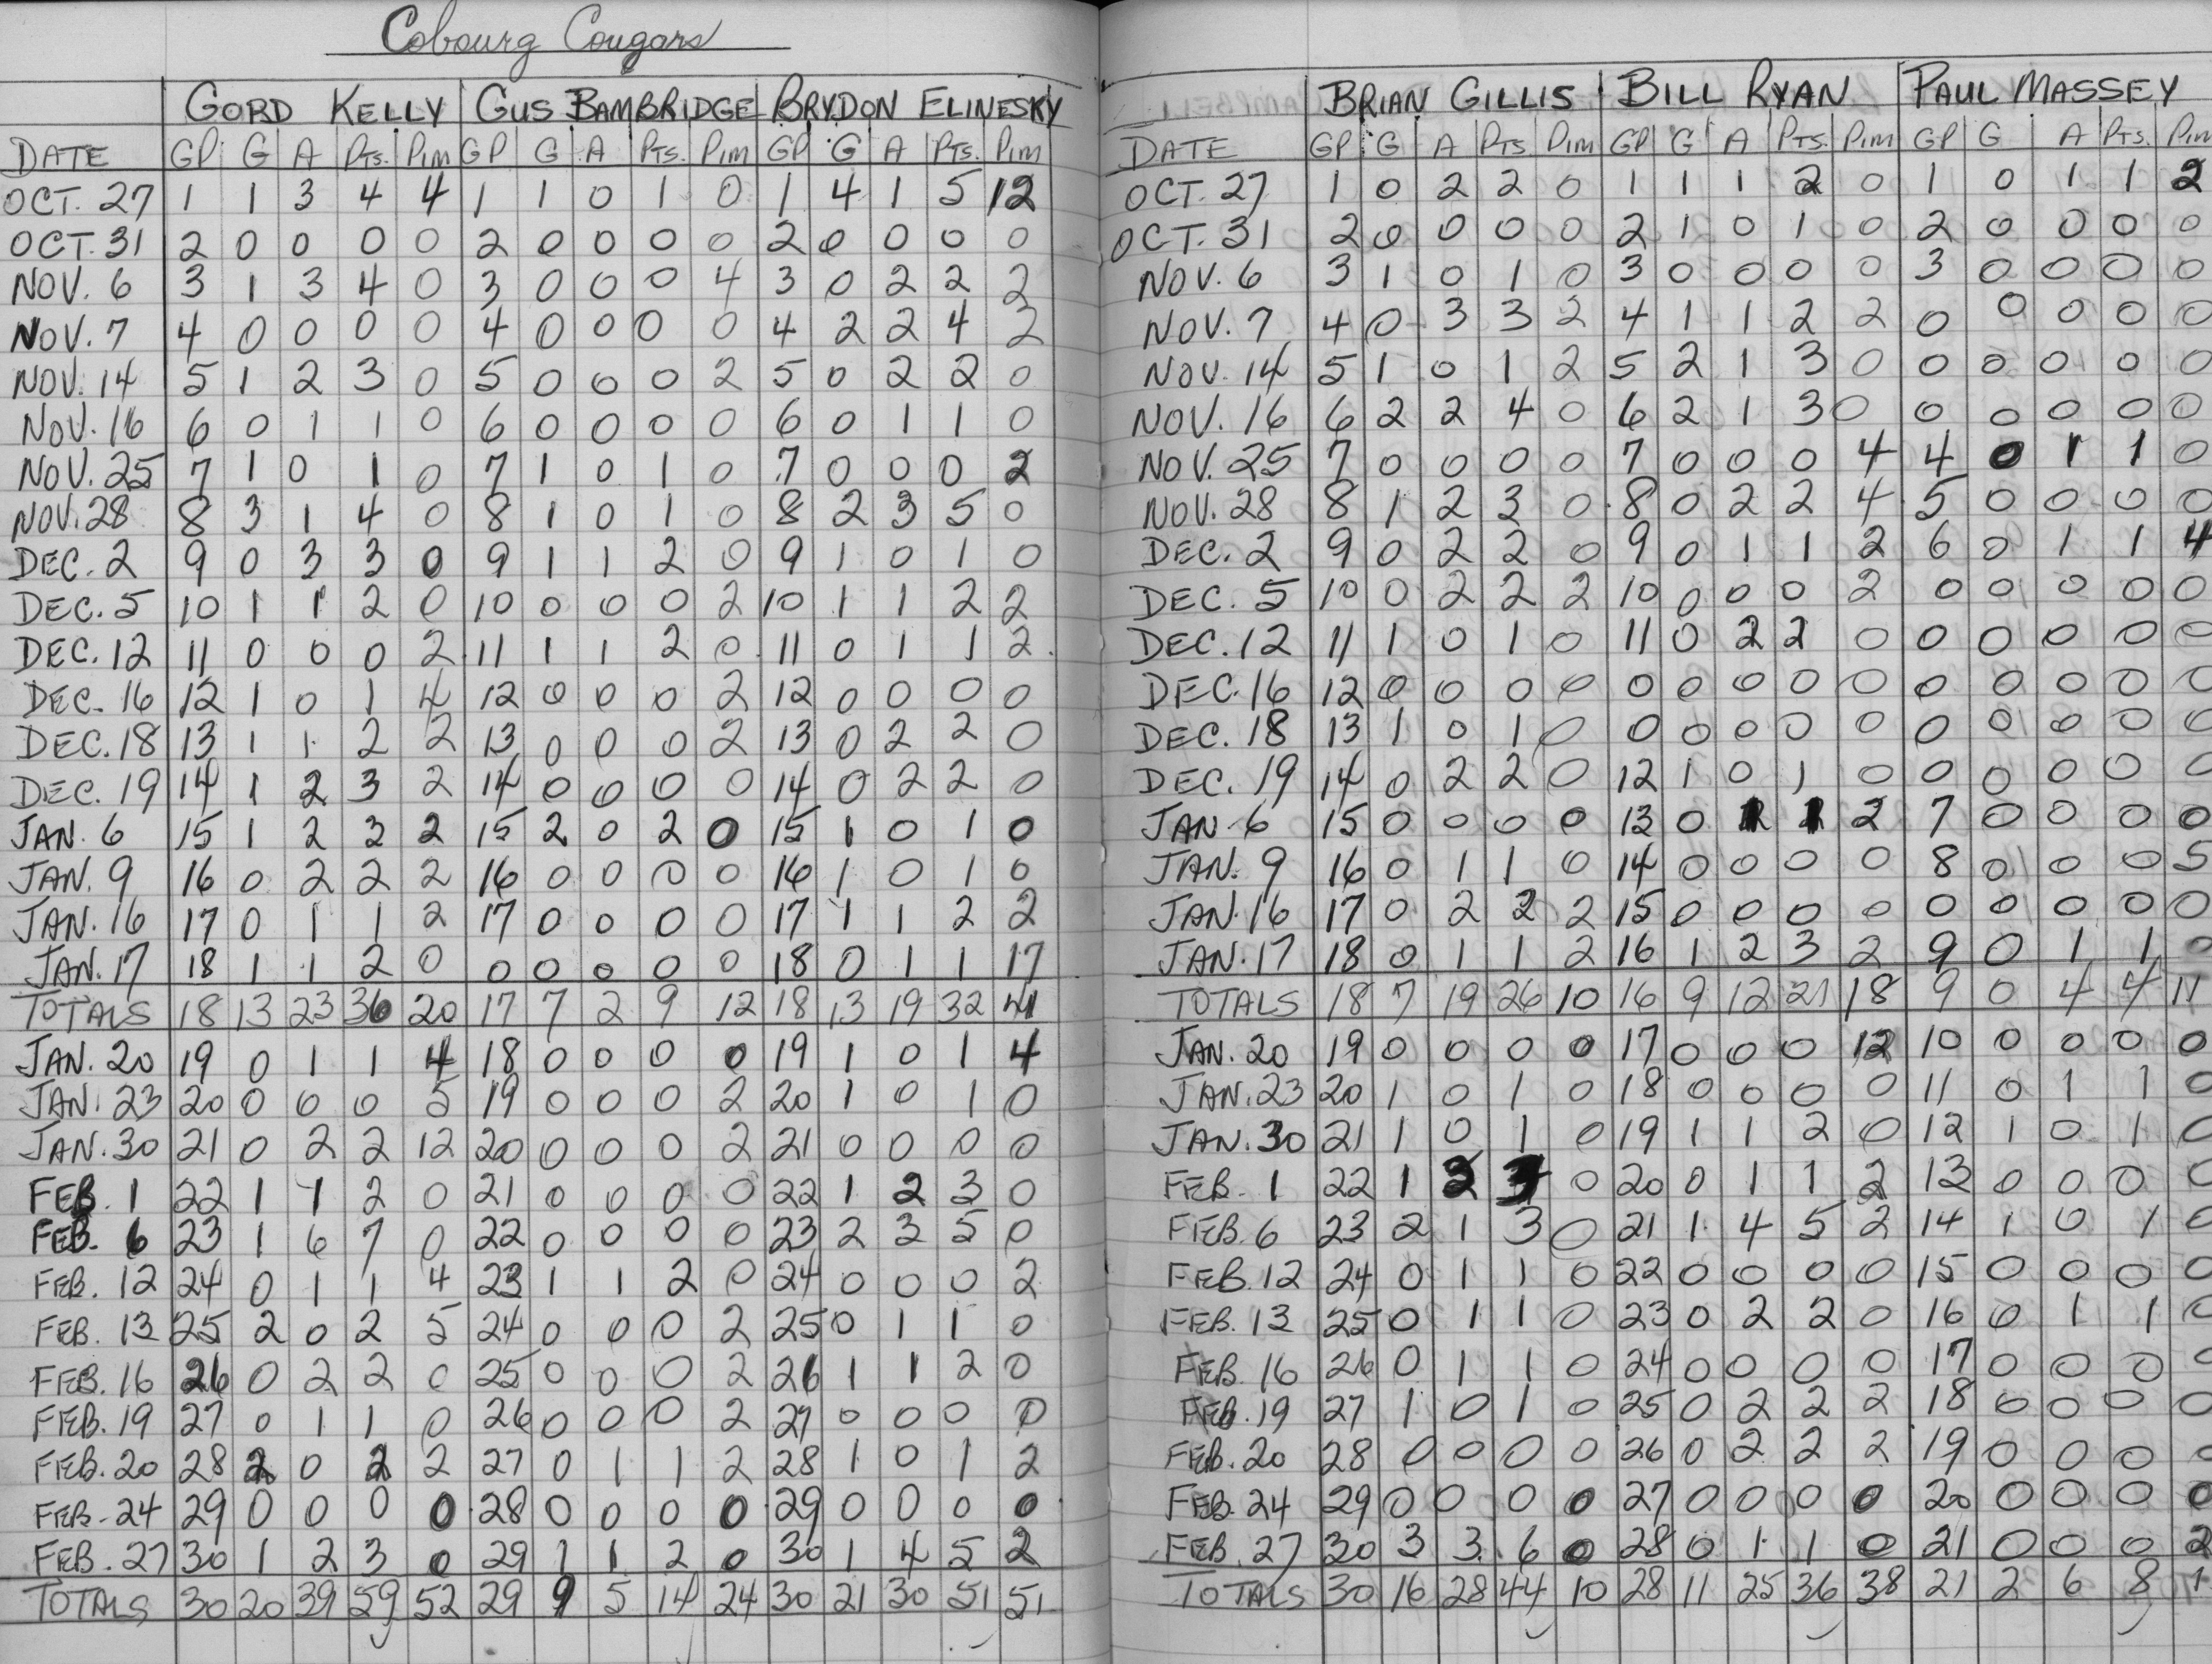 Cobourg Cougars
GORD KELLY GUS BAMBRIDGE BRYDON ELINESKY
DATE GP G A PTS. PIM GP G A PTS. PIM GP G A PTS. PIM
OCT. 27 1 1 3 4 4 1 1 0 1 0 1 4 1 5 12
OCT. 31 2 0 0 0 0 2 0 0 0 0 2 0 0 0 0
NOV. 6 3 1 3 4 0 3 0 0 0 4 3 0 2 2 2
NOV. 7 4 0 0 0 0 4 0 0 0 0 4 2 2 4 2
NOV. 14 5 1 2 3 0 5 0 0 0 2 5 0 2 2 0
NOV. 16 6 0 1 1 0 6 0 0 0 0 6 0 1 1 0
NOV. 25 7 1 0 1 0 7 1 0 1 0 7 0 0 0 2
NOV. 28 8 3 1 4 0 8 1 0 1 0 8 2 3 5 0
DEC. 2 9 0 3 3 0 9 1 1 2 0 9 1 0 1 0
DEC. 5 10 1 1 2 0 10 0 0 0 2 10 1 1 2 2
DEC. 12 11 0 0 0 2 11 1 1 2 0 11 0 1 1 2
DEC. 16 12 1 0 1 4 12 0 0 0 2 12 0 0 0 0
DEC. 18 13 1 1 2 2 13 0 0 0 2 13 0 2 2 0
DEC. 19 14 1 2 3 2 14 0 0 0 0 14 0 2 2 0
JAN. 6 15 1 2 3 2 15 2 0 2 0 15 1 0 1 0
JAN. 9 16 0 2 2 2 16 0 0 0 0 16 1 0 1 0
JAN. 16 17 0 1 1 2 17 0 0 0 0 17 1 1 2 2
JAN. 17 18 1 1 2 0 0 0 0 0 0 18 0 1 1 17
TOTALS 18 13 23 36 20 17 7 2 9 12 18 13 19 32 41
JAN. 20 19 0 1 1 4 18 0 0 0 0 19 1 0 1 4
JAN. 23 20 0 0 0 5 19 0 0 0 2 20 1 0 1 0
JAN. 30 21 0 2 2 12 20 0 0 0 2 21 0 0 0 0
FEB. 1 22 1 1 2 0 21 0 0 0 0 22 1 2 3 0
FEB. 6 23 1 6 7 0 22 0 0 0 0 23 2 3 5 0
FEB. 12 24 0 1 1 4 23 1 1 2 0 24 0 0 0 2
FEB. 13 25 2 0 2 5 24 0 0 0 2 25 0 1 1 0
FEB. 16 26 0 2 2 0 25 0 0 0 2 26 1 1 2 0
FEB. 19 27 0 1 1 0 26 0 0 0 2 27 0 0 0 0
FEB. 20 28 2 0 2 2 27 0 1 1 2 28 1 0 1 2
FEB. 24 29 0 0 0 0 28 0 0 0 0 29 0 0 0 0
FEB. 27 30 1 2 3 0 29 1 1 2 0 30 1 4 5 2
TOTALS 30 20 39 59 52 29 9 5 14 24 30 21 30 51 51
BRIAN GILLIS BILL RYAN PAUL MASSEY
DATE GP G A PTS. PIM GP G A PTS. PIM GP G A PTS. PIM
OCT. 27 1 0 2 2 0 1 1 1 2 0 1 0 1 1 2
OCT. 31 2 0 0 0 0 2 1 0 1 0 2 0 0 0 0
NOV. 6 3 1 0 1 0 3 0 0 0 0 3 0 0 0 0
NOV. 7 4 0 3 3 2 4 1 1 2 2 0 0 0 0 0
NOV. 14 5 1 0 1 2 5 2 1 3 0 0 0 0 0 0
NOV. 16 6 2 2 4 0 6 2 1 3 0 0 0 0 0 0
NOV. 25 7 0 0 0 0 7 0 0 0 4 4 0 1 1 0
NOV. 28 8 1 2 3 0 8 0 2 2 4 5 0 0 0 0
DEC. 2 9 0 2 2 0 9 0 1 1 2 6 0 1 1 4
DEC. 5 10 0 2 2 2 10 0 0 0 2 0 0 0 0 0
DEC. 12 11 1 0 1 0 11 0 2 2 0 0 0 0 0 0
DEC. 16 12 0 0 0 0 0 0 0 0 0 0 0 0 0 0
DEC. 18 13 1 0 1 0 0 0 0 0 0 0 0 0 0 0
DEC. 19 14 0 2 2 0 12 1 0 1 0 0 0 0 0 0
JAN. 6 15 0 0 0 0 13 0 1 1 2 7 0 0 0 0
JAN. 9 16 0 1 1 0 14 0 0 0 0 8 0 0 0 5
JAN. 16 17 0 2 2 2 15 0 0 0 0 0 0 0 0 0
JAN. 17 18 0 1 1 2 16 1 2 3 2 9 0 1 1 0
TOTALS 18 7 19 26 10 16 9 12 21 18 9 0 4 4 11
JAN. 20 19 0 0 0 0 17 0 0 0 12 10 0 0 0 0
JAN. 23 20 1 0 1 0 18 0 0 0 0 11 0 1 1 0
JAN. 30 21 1 0 1 0 19 1 1 2 0 12 1 0 1 0
FEB. 1 22 1 0 20 0 1 1 2 13 0 0 0 0
FEB. 6 23 2 1 3 0 21 1 4 5 2 14 1 0 1 0
FEB. 12 24 0 1 1 0 22 0 0 0 0 15 0 0 0 0
FEB. 13 25 0 1 1 0 23 0 2 2 0 16 0 1 1 0
FEB. 16 26 0 1 1 0 24 0 0 0 0 17 0 0 0 0
FEB. 19 27 1 0 1 0 25 0 2 2 2 18 0 0 0 0
FEB. 20 28 0 0 0 0 26 0 2 2 2 19 0 0 0 0
FEB. 24 29 0 0 0 0 27 0 0 0 0 20 0 0 0 0
FEB. 27 30 3 3 6 0 28 0 1 1 0 21 0 0 0 2
TOTALS 30 16 28 44 10 28 11 25 36 38 21 2 6 8